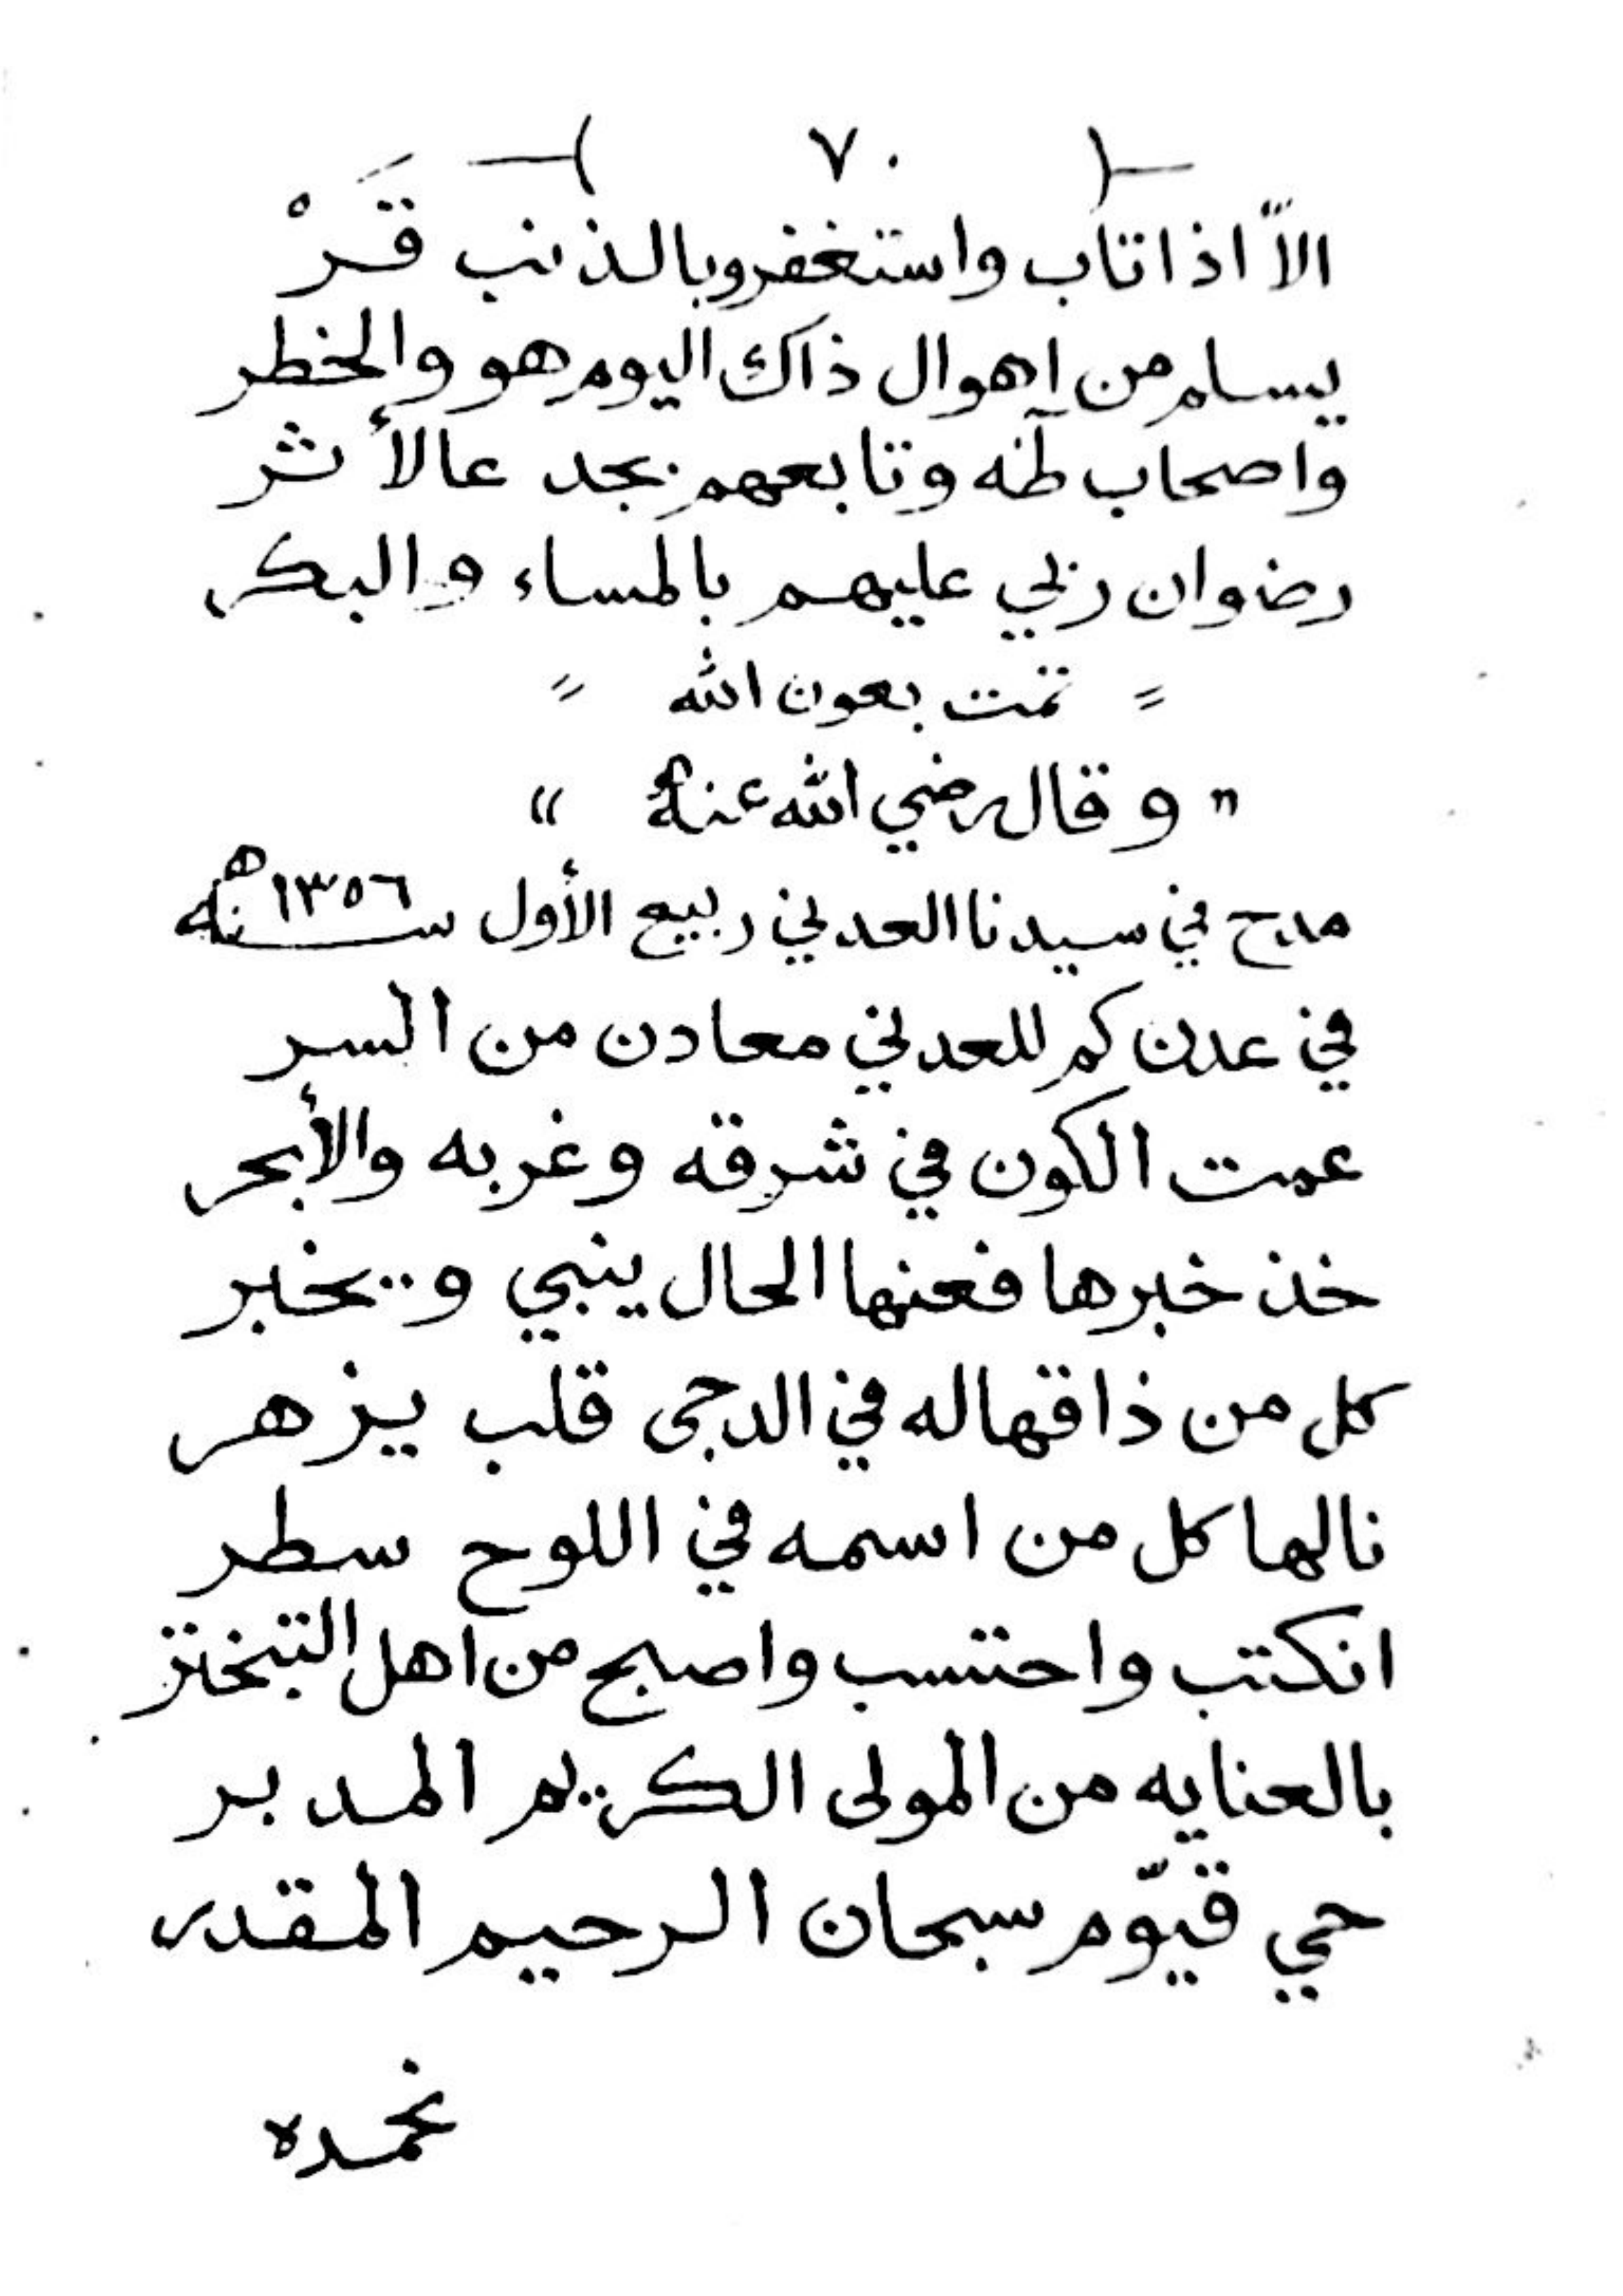 —( ٧٠ )—
الاّ اذا تاب واستغفر وبالذنب قَرْ
يسلم من اهوال ذاك اليوم هو والخطر
واصحاب طٰه وتابعهم بجد عالأثر
رضوان ربي عليهم بالمساء والبكر
= تمت بعون الله =
" وقال رضي الله عنه "
مدح في سيدنا العدني ربيع الأول سنه ١٣٥٦ ه
في عدن كم للعدني معادن من السر
عمت الكون في شرقه وغربه والأبحر
خذ خبرها فعنها الحال ينبي ويخبر
كل من ذاقها له في الدجى قلب يزهر
نالها كل من اسمه في اللوح سطر
انكتب واحتسب واصبح من اهل التبختر
بالعنايه من المولى الكريم المدبر
حي قيّوم سبحان الرحيم المقدر
نحمده